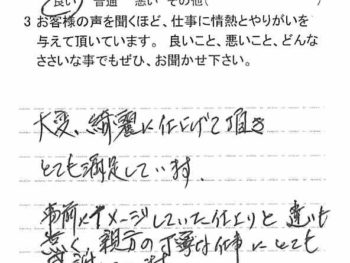 良い 普通 悪い その他( )
3 お客様の声を聞くほど、仕事に情熱とやりがいを
与えて頂いています。 良いこと、悪いこと、どんな
ささいな事でもぜひ、お聞かせ下さい。
大変、綺麗に仕上げて頂き
とても満足しています。
事前にイメージしていた仕上りと 違いも
無く 親方の丁寧な仕事に とても
感謝